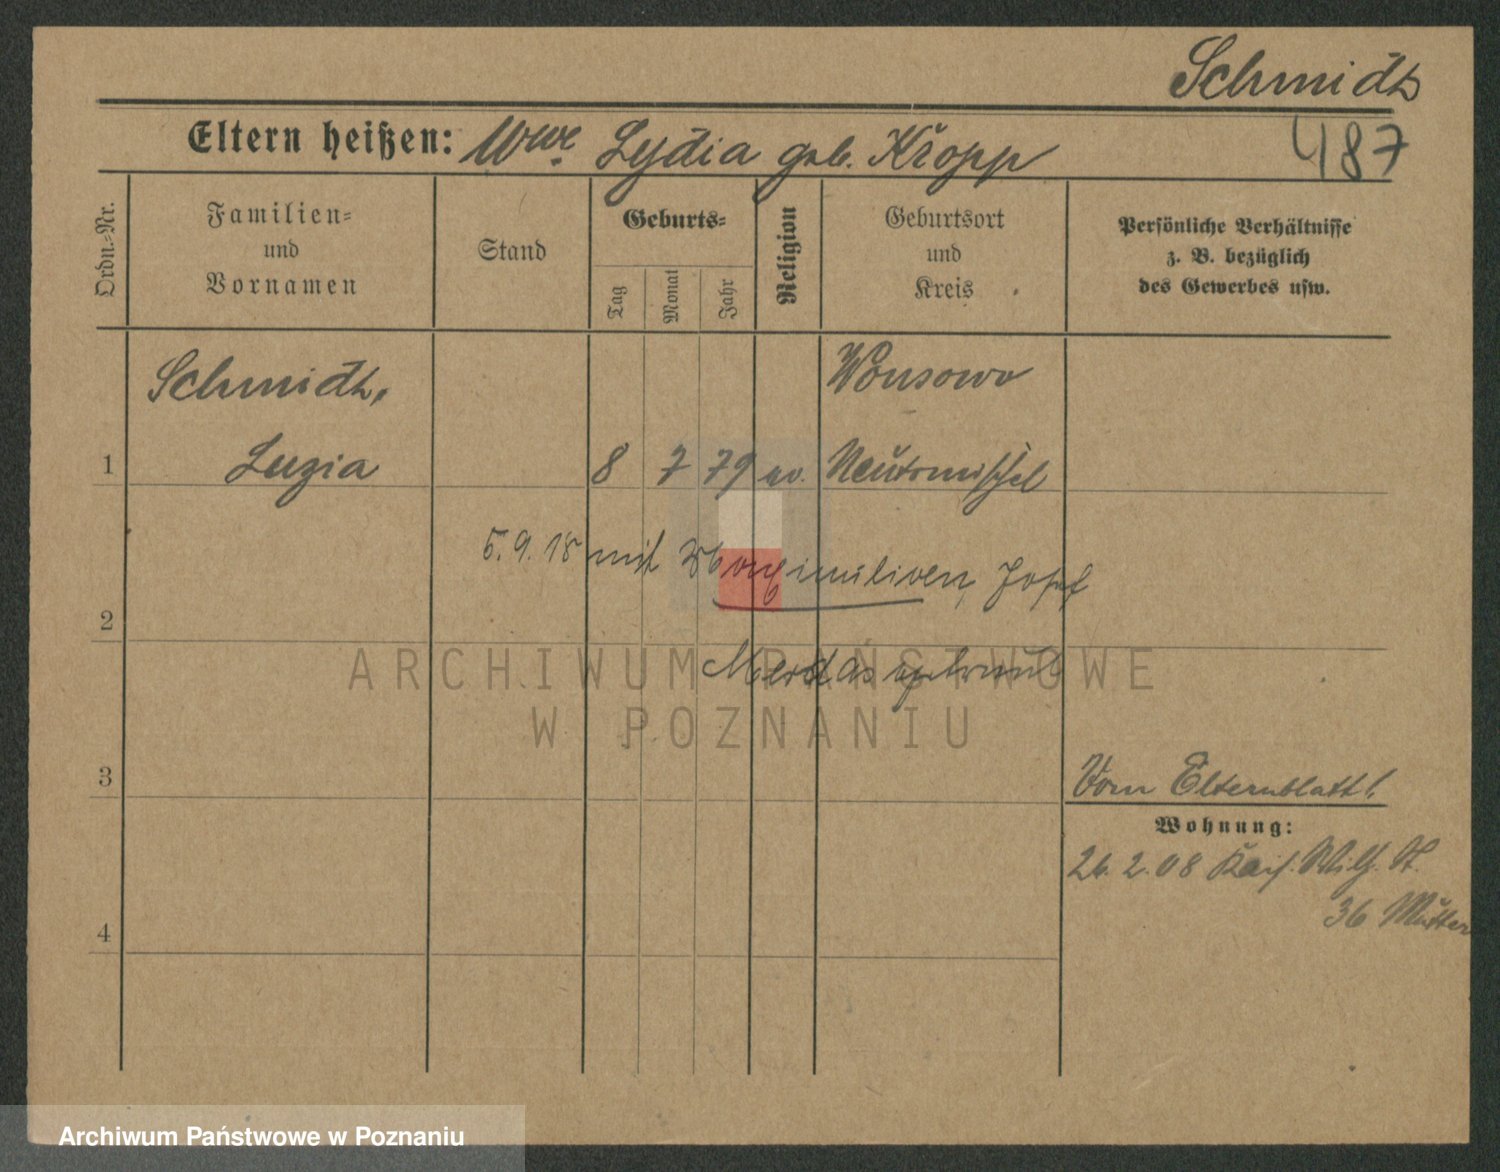 Schmidt
Eltern heißen: Wwe. Lydia geb. Kropp
487
Ordn.-Nr.
Familien- und Vornamen
Stand
Geburts-
Tag
Monat
Jahr
Religion
Geburtsort und Kreis
Persönliche Verhältnisse z. B. bezüglich des Gewerbes usw.
Schmidt,
Wonsowo
1 Luzia 8 7 79 ev. Neutomischel
5.9.18 mit Maximilian Josef
2
Merdas getraut
ARCHIWUM PAŃSTWOWE
W POZNANIU
3
Vom Elternblatt!
Wohnung:
26.2.08 Kais. Wilh. St.
36 Mutter
4
Archiwum Państwowe w Poznaniu